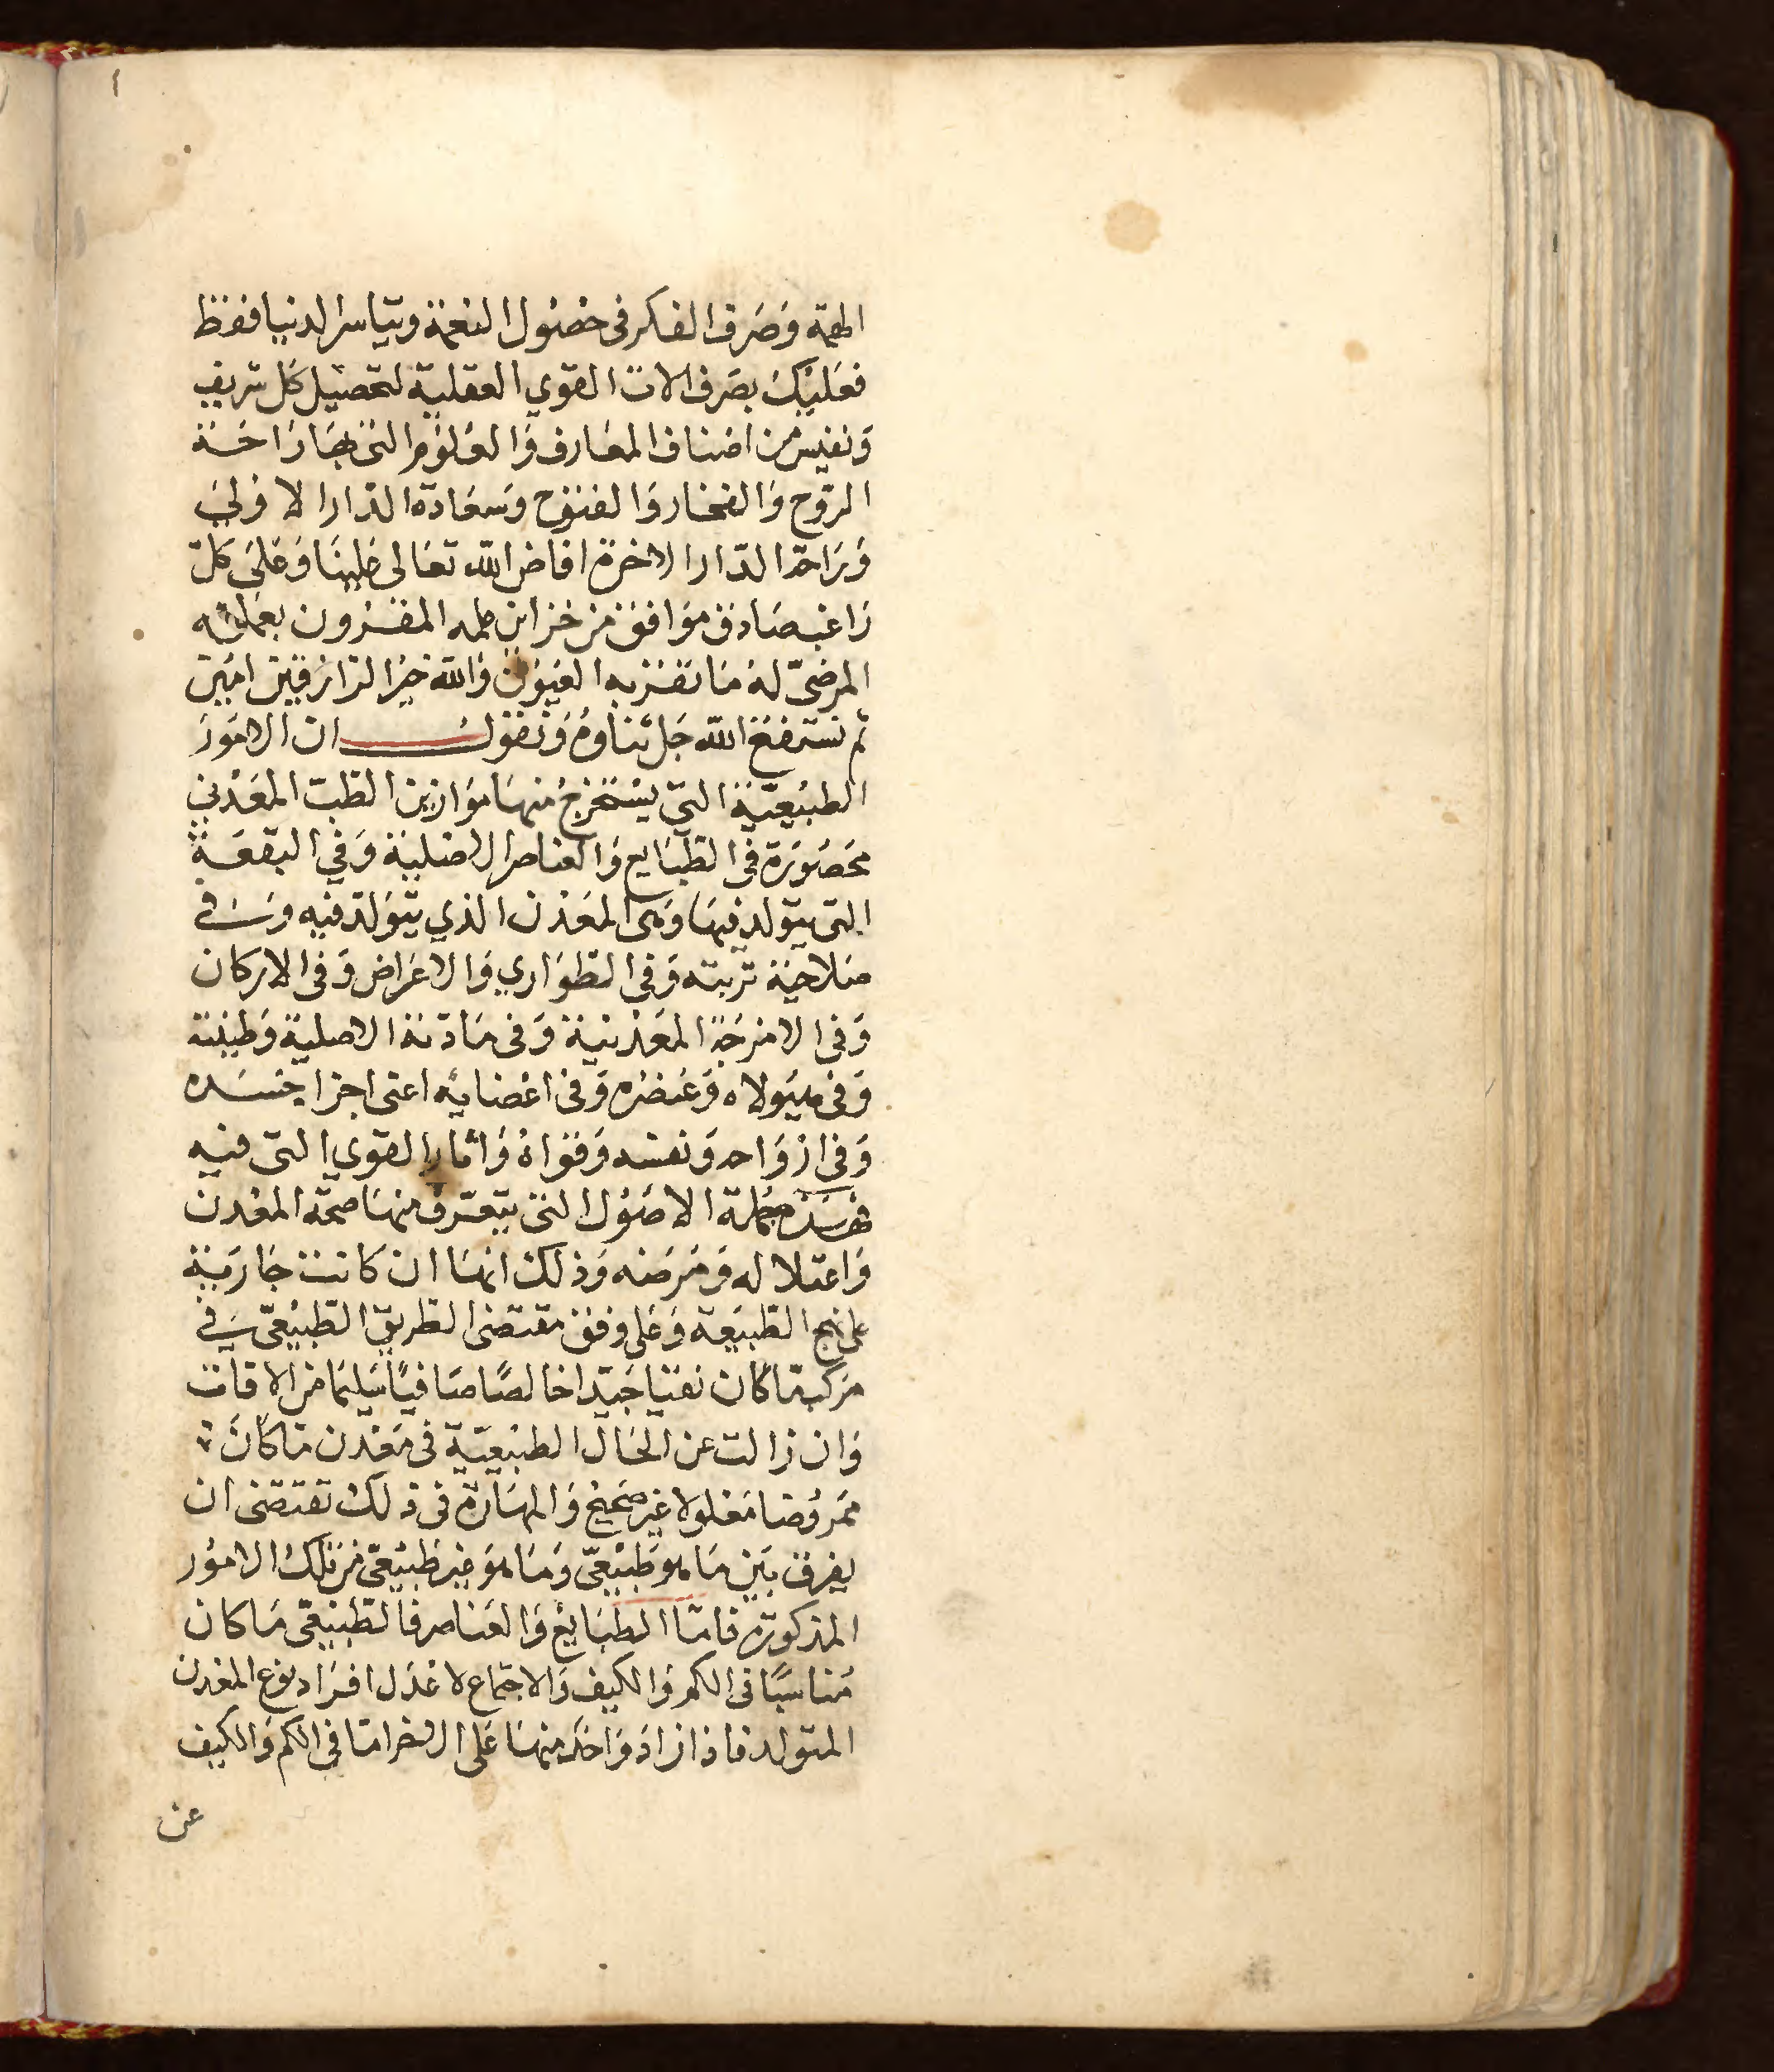 الهمة وصرف الفكر فى حصول النعمة وتياسر الدنيا فقط
فعليك بصرف الات القوي العقلية لتحصيل كل شريف
ونفيس من اصناف المعارف والعلوم التى بها راحة
الروح والفخار والفتوح وسعادة الدار الاولي
وراحة الدار الاخرة افاض الله تعالى علينا وعلى كل
راغب صادق موافق من خزاين علمه المقرون بعمله
المرضى له ما تقر به العيون والله خير الرازقين امين
ثم نسترفع الله جل ثناوه ونقول ان الامور
الطبيعية التى يستخرج منها موازين الطب المعدني
محصورة في الطبايع والعناصر الاصلية وفي البقعة
التى يتولد فيها وهى المعدن الذي يتولد فيه وفي
صلاحية تربته وفي الطواري والاعراض وفى الاركان
وفي الامزجة المعدنية وفى مادته الاصلية وطينته
وفى هيولاه وعنصره وفى اعضايه اعنى اجزا جسده
وفى ازواحه ونفسه وقواه واثار القوي التى فيه
فهذه جملة الاصول التى يتعرف منها صحة المعدن
واعتلاله ومرضه وذلك انها ان كانت جارية
على نهج الطبيعة وعلى وفق مقتضى الطريق الطبيعى في
مركب ما كان نقيا جيدا خالصًا صافيًا سليما من الافات
وان زالت عن الحال الطبيعية فى معدن ما كان
ممروضا معلولا غير صحيح والمهارة فى ذلك تقتضى ان
يفرق بين ما هو طبيعى وما هو غير طبيعى من تلك الامور
المذكورة فاما الطبايع والعناصر فالطبيعى ما كان
مناسبًا فى الكم والكيف والاجتماع لاعدل افراد نوع المعدن
المتولد فاذا زاد واحد منها على الاخر اما في الكم والكيف
عن